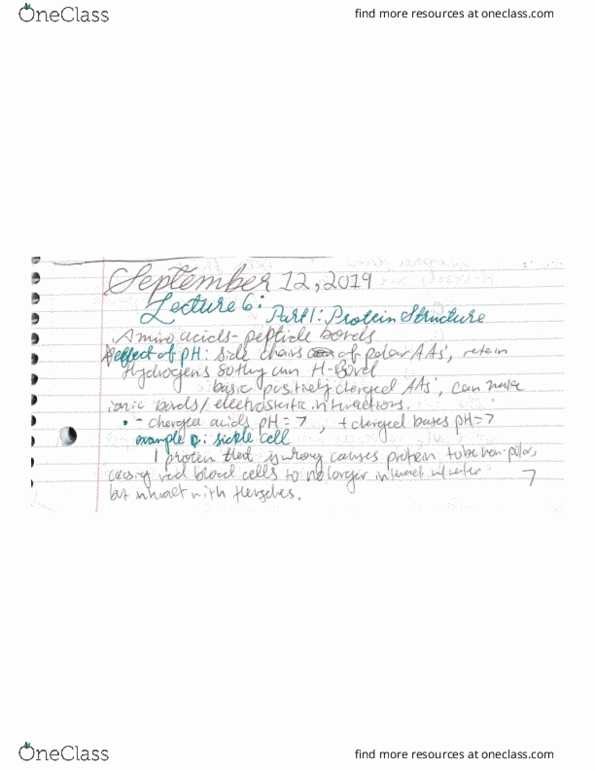 OneClass
find more resources at oneclass.com
September 12, 2019
Lecture 6:
Part 1: Protein Structure
Amino acids - peptide bonds
effect of pH: side chains of polar AAs', retain
Hydrogens so they can H-Bond
basic positively charged AAs', can have
ionic bonds/ electrostatic interactions.
• - charged acids pH = 7 , + charged bases pH = 7
example : sickle cell
1 protein that is wrong causes protein to be non-polar,
causing red blood cells to no longer interact w/ water
7
but interact with themselves.
OneClass
find more resources at oneclass.com